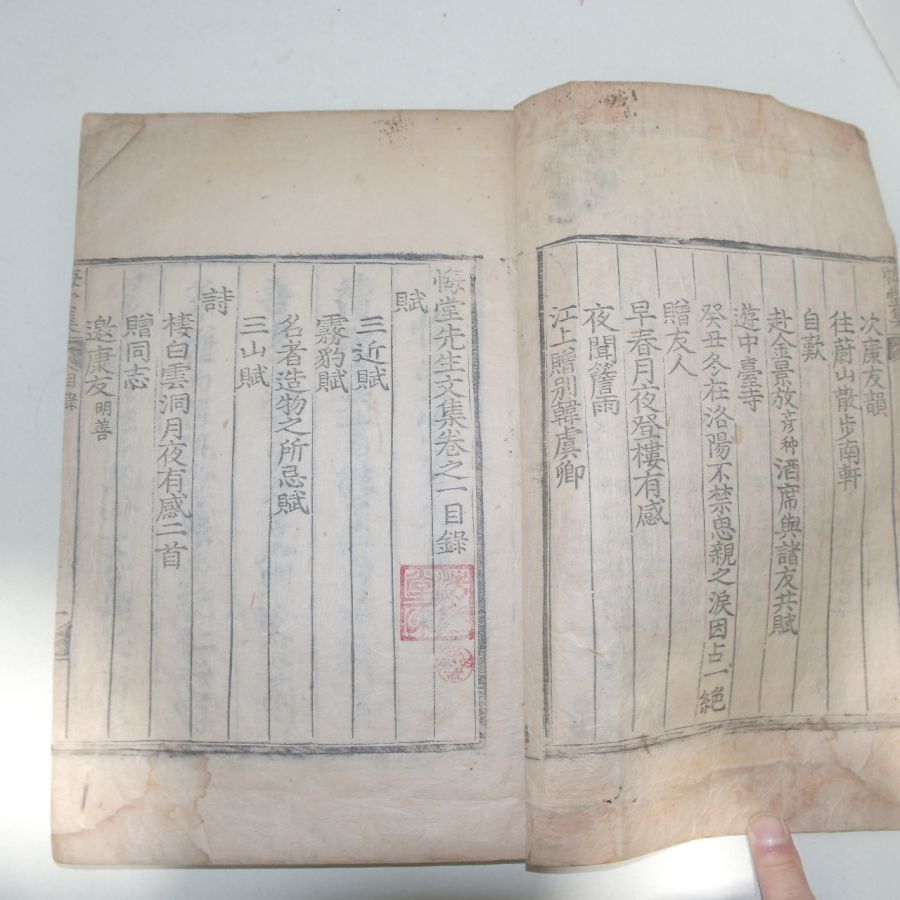 次康友韻
往蔚山散步南軒
自歎
赴金景放彦种酒席與諸友共賦
遊中臺寺
癸丑冬在洛陽不禁思親之淚因占一絶
贈友人
早春月夜登樓有感
夜聞簷雨
江上贈別韓虞卿
悔堂先生文集卷之一目錄
賦
三近賦
霧豹賦
名者造物之所忌賦
三山賦
詩
棲白雲洞月夜有感二首
贈同志
邀康友明善